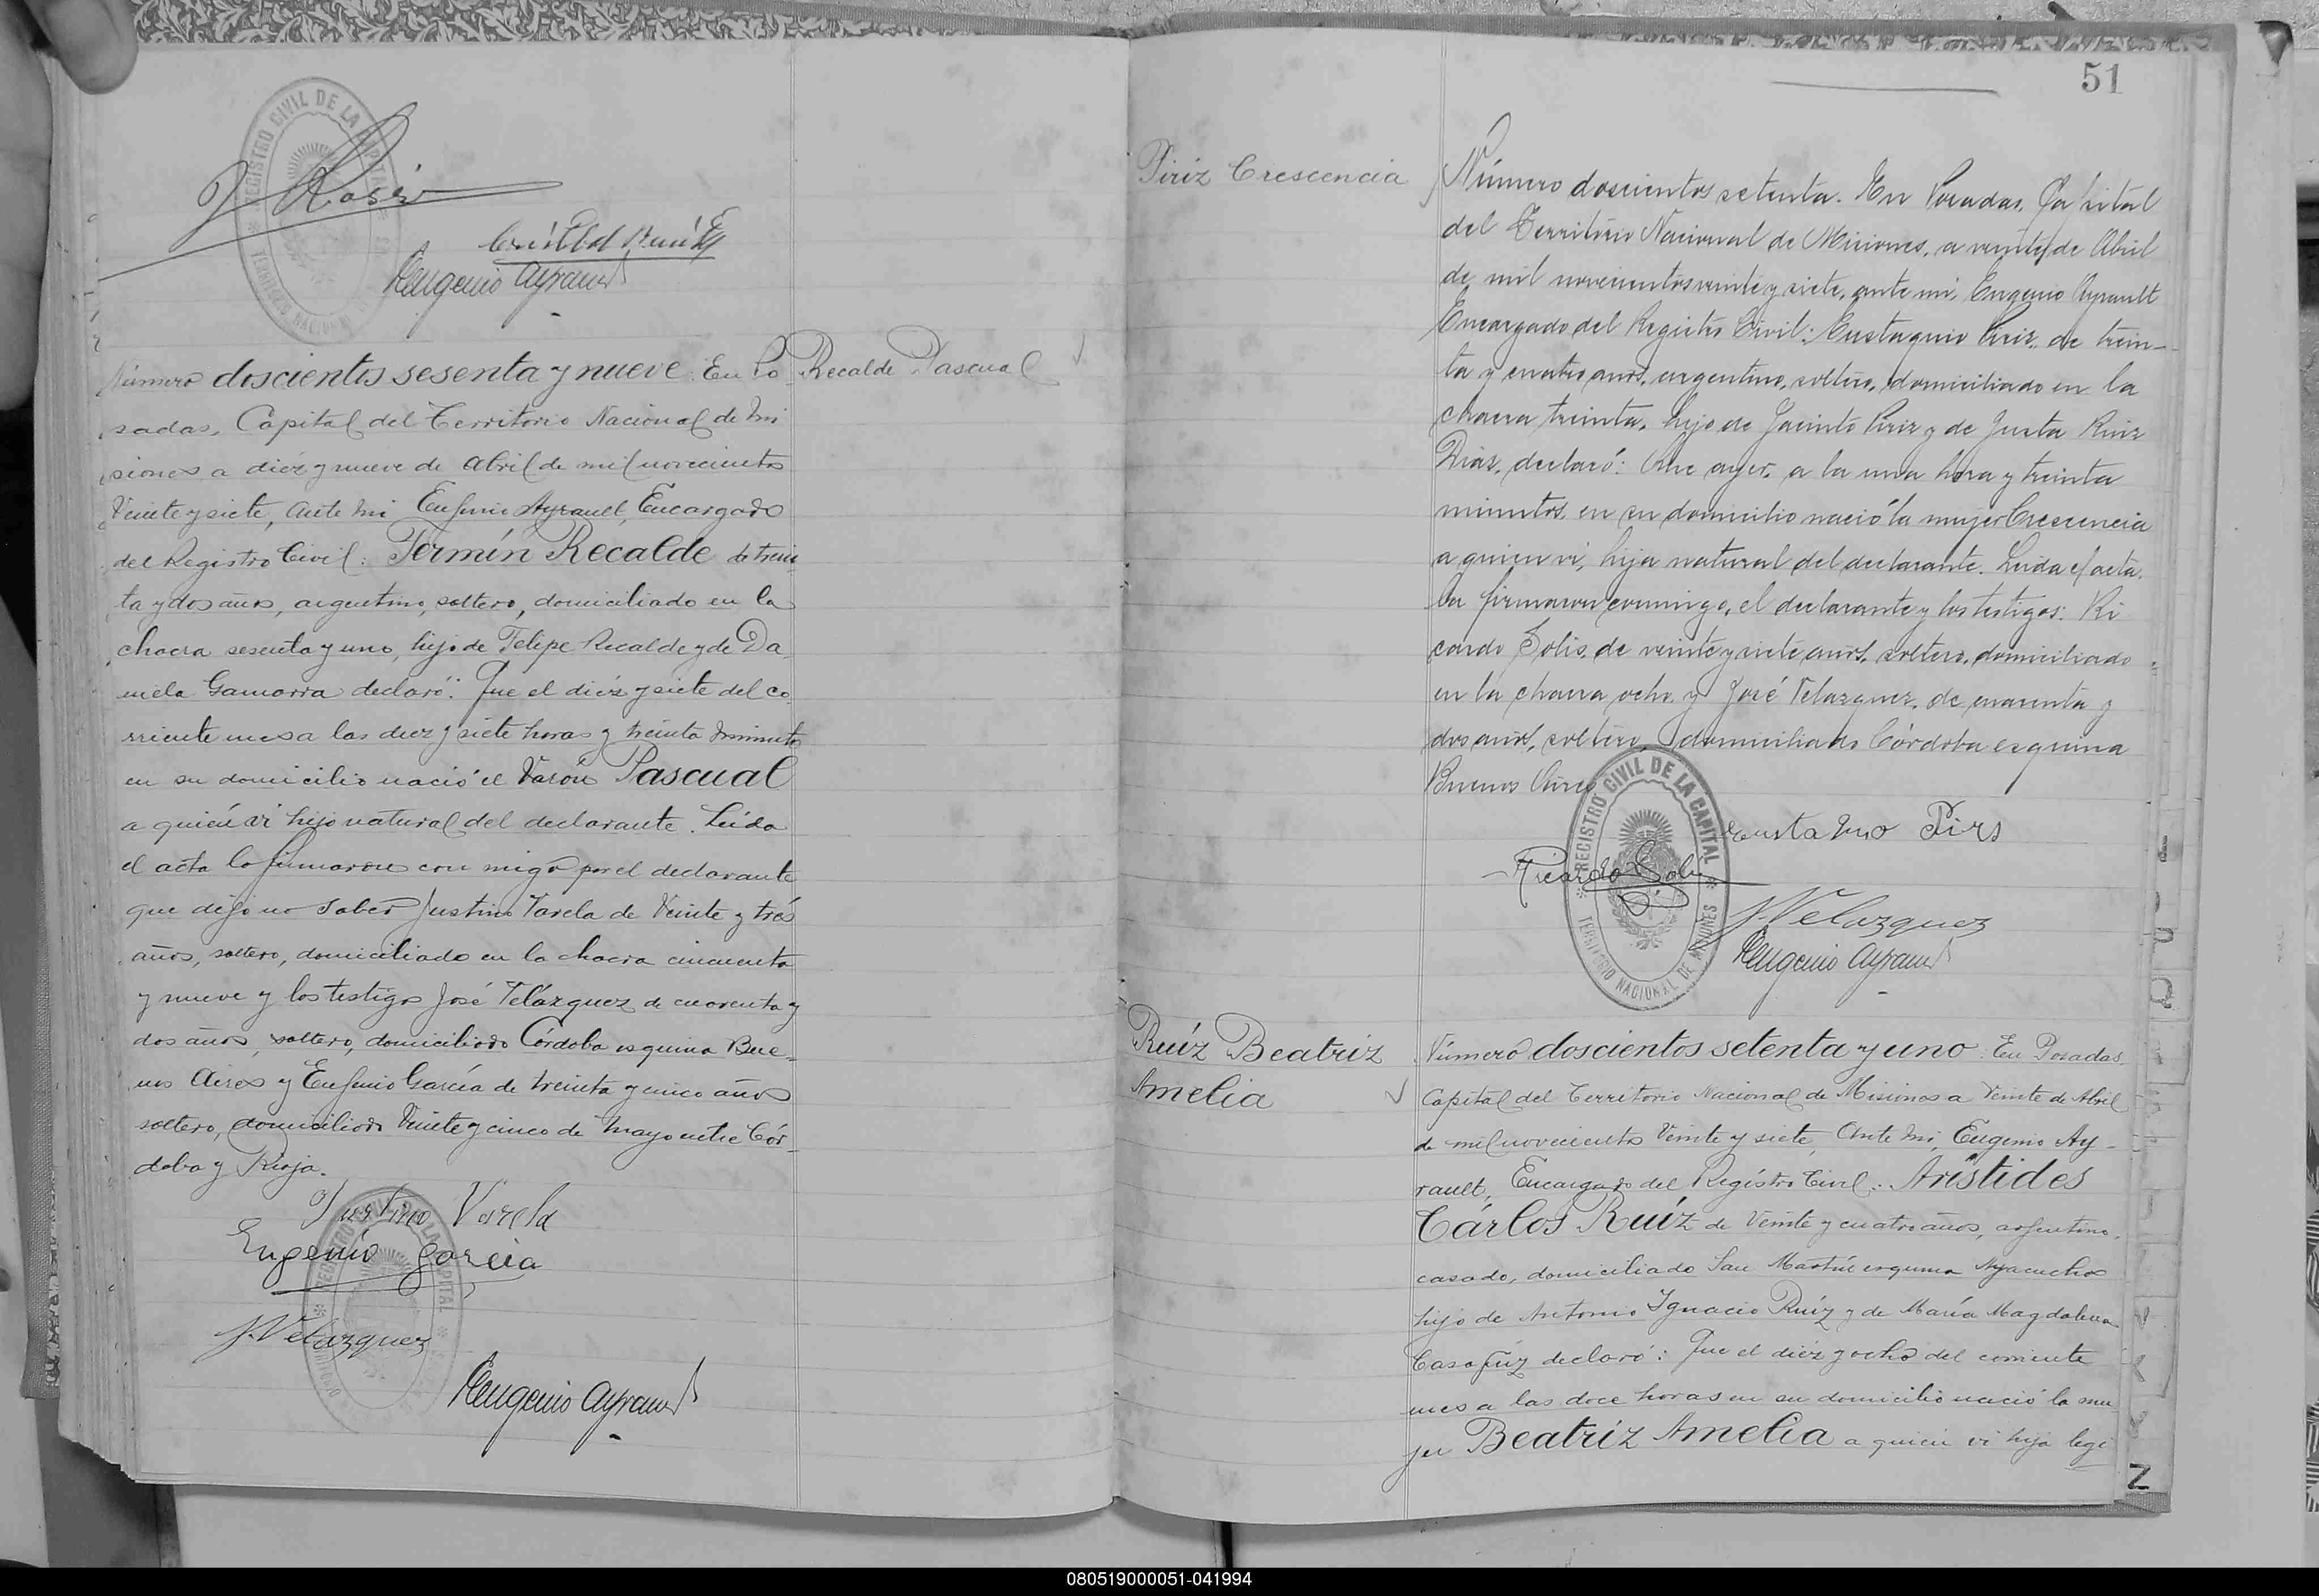 REGISTRO CIVIL DE LA CAPITAL
TERRITORIO NACIONAL
Eugenio Ayrault
Recalde Pascual
Número doscientos sesenta y nueve: En Po
sadas, Capital del Territorio Nacional de Mi
siones a diez y nueve de Abril de mil novecientos
Veinte y siete, ante mi Eugenio Ayrault, Encargado
del Registro Civil: Fermín Recalde de trein
ta y dos años, argentino, soltero, domiciliado en la
chacra sesenta y uno, hijo de Felipe Recalde y de Da
niela Gamarra declaró: Que el diez y siete del co
rriente mes a las diez y siete horas y treinta minutos
en su domicilio nació el Varón Pascual
a quien vi hijo natural del declarante. Leída
el acta la firmaron con migo por el declarante
que dijo no saber Justino Varela de Veinte y tres
años, soltero, domiciliado en la chacra cincuenta
y nueve y los testigos José Velázquez de cuarenta y
dos años, soltero, domiciliado Córdoba esquina Bue-
nos Aires y Eugenio García de treinta y cinco años
soltero, domiciliado Veinte y cinco de Mayo entre Cór-
doba y Rioja.
Justino Varela
Eugenio Garcia
J. Velazquez
Eugenio Ayrault
51
Piriz Crescencia
Número doscientos setenta. En Posadas, Capital
del Territorio Nacional de Misiones, a veinte de Abril
de mil novecientos veinte y siete, ante mi, Eugenio Ayrault
Encargado del Registro Civil: Eustaquio Piriz, de trein-
ta y cuatro años, argentino, soltero, domiciliado en la
chacra treinta, hijo de Jacinto Piriz y de Justa Ruiz
Diaz, declaró: Que ayer, a la una hora y treinta
minutos, en su domicilio nació la mujer Crescencia
a quien vi, hija natural del declarante. Leida el acta,
la firmaron conmigo, el declarante y los testigos: Ri
cardo Solis, de veinte y siete años, soltero, domiciliado
en la chacra ocho y José Velazquez, de cuarenta y
dos años, soltero, domiciliado Córdoba esquina
Buenos Aires
REGISTRO CIVIL DE LA CAPITAL
TERRITORIO NACIONAL DE MISIONES
Pirs
Ricardo Solis
J. Velazquez
Eugenio Ayrault
Ruíz Beatríz
Amelia
Número doscientos setenta y uno: En Posadas,
Capital del Territorio Nacional de Misiones a Veinte de Abril
de mil novecientos Veinte y siete, Ante Mi, Eugenio Ay-
rault, Encargado del Registro Civil: Arístides
Cárlos Ruíz de Veinte y cuatro años, argentino,
casado, domiciliado San Martín esquina Ayacucho
hijo de Antonio Ignacio Ruíz y de María Magdalena
declaró: Que el diez y ocho del corriente
mes a las doce horas en su domicilio nació la mu
jer Beatríz Amelia a quien vi hija legi
Z
080519000051-041994